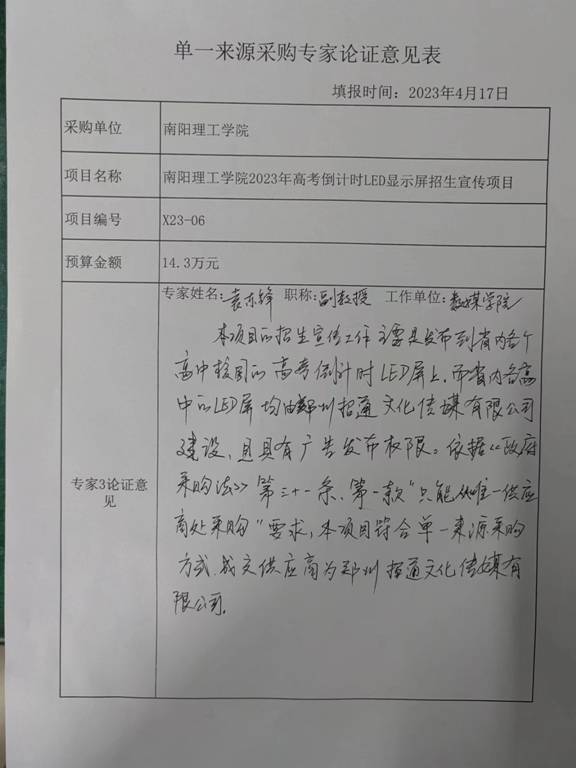 单一来源采购专家论证意见表
填报时间：2023年4月17日
采购单位 南阳理工学院
项目名称 南阳理工学院2023年高考倒计时LED显示屏招生宣传项目
项目编号 X23-06
预算金额 14.3万元
专家3论证意见
专家姓名：袁东锋 职称：副教授 工作单位：数媒学院
本项目的招生宣传工作主要是发布到省内各个
高中校园的高考倒计时LED屏上，而省内各高
中的LED屏均由郑州招通文化传媒有限公司
建设，且具有广告发布权限。依据《政府
采购法》第三十一条、第一款"只能从唯一供应
商处采购"要求，本项目符合单一来源采购
方式，成交供应商为郑州招通文化传媒有
限公司。